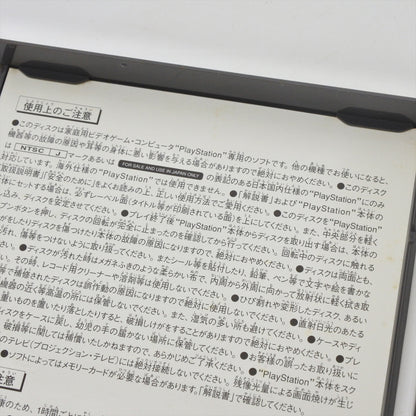 使用上のご注意
●このディスクは家庭用ビデオゲーム・コンピュータ“PlayStation”専用のソフトです。他の機種でお使いになると、
機器等の故障の原因や耳等の身体に悪い影響を与える場合がありますので絶対におやめください。●このディスク
は NTSC J マークあるいは FOR SALE AND USE IN JAPAN ONLY の表記のある日本国内仕様の“PlayStation”にのみ
対応しています。海外仕様の“PlayStation”では使用できません。●「解説書」および“PlayStation”本体の
取扱説明書「安全のために」をよくお読みの上、正しい使用方法でご愛用ください。●このディスクを“PlayStation”
本体にセットする場合は、必ずレーベル面(タイトル等が印刷されている面)を上にしてください。また、中央部分を軽く
し込み、ディスクを安定させてください。●プレイ終了後“PlayStation”本体からディスクを取り出す場合は、本体の
プンボタンを押し、ディスクの回転が完全に止まったのを確認してから行ってください。回転中のディスクに触れる
がしたりディスクを傷つけたり本体の故障の原因になりますので、絶対におやめください。●ディスクは両面とも、
汚れ、傷等をつけないように取り扱ってください。またシール等を貼付したり、鉛筆、ペン等で文字や絵を書かな
●ディスクが汚れた時はメガネふきのような柔らかい布で、内周から外周に向かって放射状に軽く拭き取
その時、レコード用クリーナーや溶剤等は使用しないでください。●ひび割れや変形したディスク、ある
等で補修されたディスクは誤作動の原因になりますので絶対に使用しないでください。●直射日光のあたる
機器の近く等高温の所には保管しないでください。また、湿気の多い所も避けてください。●ケースやデ
重いものを置いたり落としたりすると、破損しけがをすることがありますので絶対におやめください。●プレ
ディスクをケースに戻し、幼児の手の届かない場所に保管してください。●お客様の誤ったお取り扱いに
破損等に関しては補償いたしかねますので、あらかじめご了承ください。●“PlayStation”本体をスク
のテレビ(プロジェクション・テレビ)には絶対接続しないでください。残像光量による画面焼けが生じ
●ソフトによってはメモリーカードが必要な場合があります。「解説書」で確認してください。
注意
康のため、1時間ご